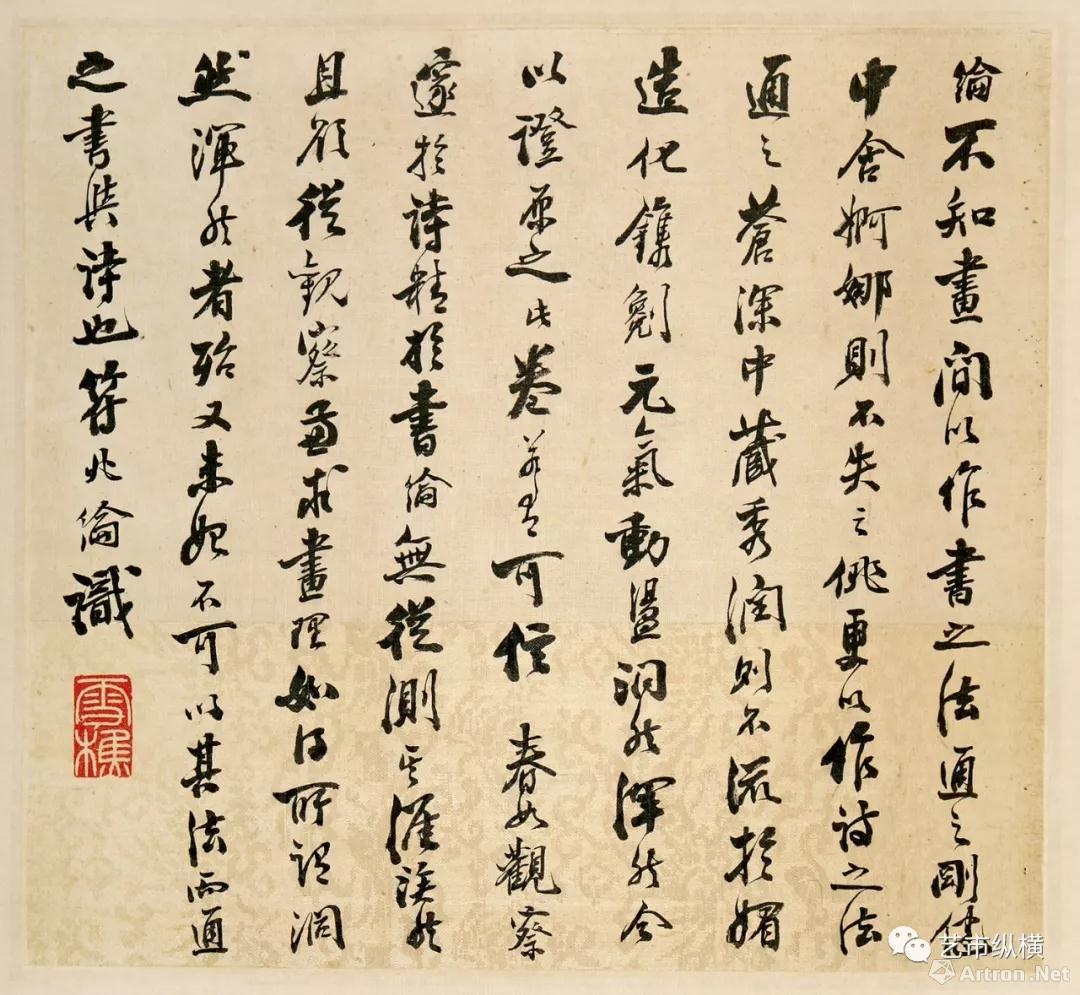 綸不知畫間以作書之法通之剛健
中含婀娜則不失之佻更以作詩之法
通之蒼深中藏秀潤則不流於媚
造化鐫劖元氣動盪洞然渾然今
以證原之此卷可信 春如觀察
邃於詩精於書綸無從測其涯涘然
且願從觀察求畫理如得所謂洞
然渾然者殆又未始不可以其法而通
之書與詩也符兆綸識
雪樵
艺市纵横
Artron.Net